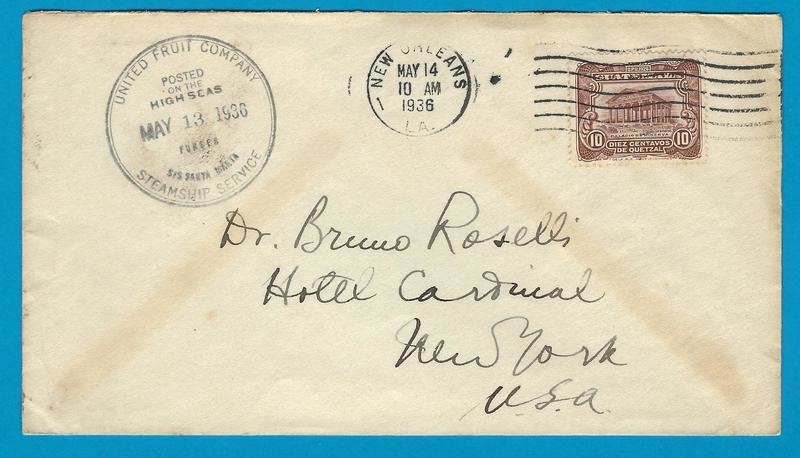 UNITED FRUIT COMPANY
POSTED
ON THE
HIGH SEAS
MAY 13 1936
PURSER
S/S SANTA MARTA
STEAMSHIP SERVICE
NEW ORLEANS
MAY 14
10 AM
1936
LA.
GUATEMALA
PALACIO DE MINERVA
10 10
DIEZ CENTAVOS
DE QUETZAL
Dr. Bruno Roselli
Hotel Cardinal
New York
U.S.A.